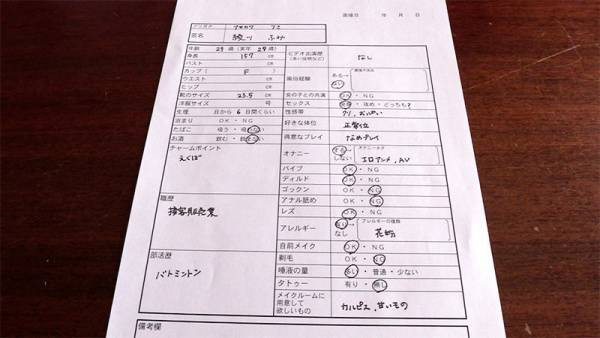 面接日 年 月 日
芸名
年齢 29歳(実年 29歳)
身長 157 CM
バスト CM
カップ ( F )
ウエスト CM
ヒップ CM
靴のサイズ 23.5 CM
洋服サイズ 号
生理 日から 6日間くらい
お泊まり OK・NG
たばこ
お酒
チャームポイント
えくぼ
職歴
接客販売業
部活歴
バトミントン
備考欄
ビデオ出演歴 なし
風俗経験 ある→ ない
女の子との共演 OK・NG
セックス 受身・攻め・どっちも?
性感帯
好きな体位 正常位
得意なプレイ
オナニー する→ しない
バイブ OK・NG
ディルド OK・NG
ゴックン OK・NG
アナル舐め OK・NG
レズ OK・NG
アレルギー ある→ なし アレルギーの種類 花粉
自前メイク OK・NG
剃毛 OK・NG
唾液の量 多い・普通・少ない
タトゥー 有り・無し
メイクルームに
用意して
欲しいもの
カルピス、甘いもの